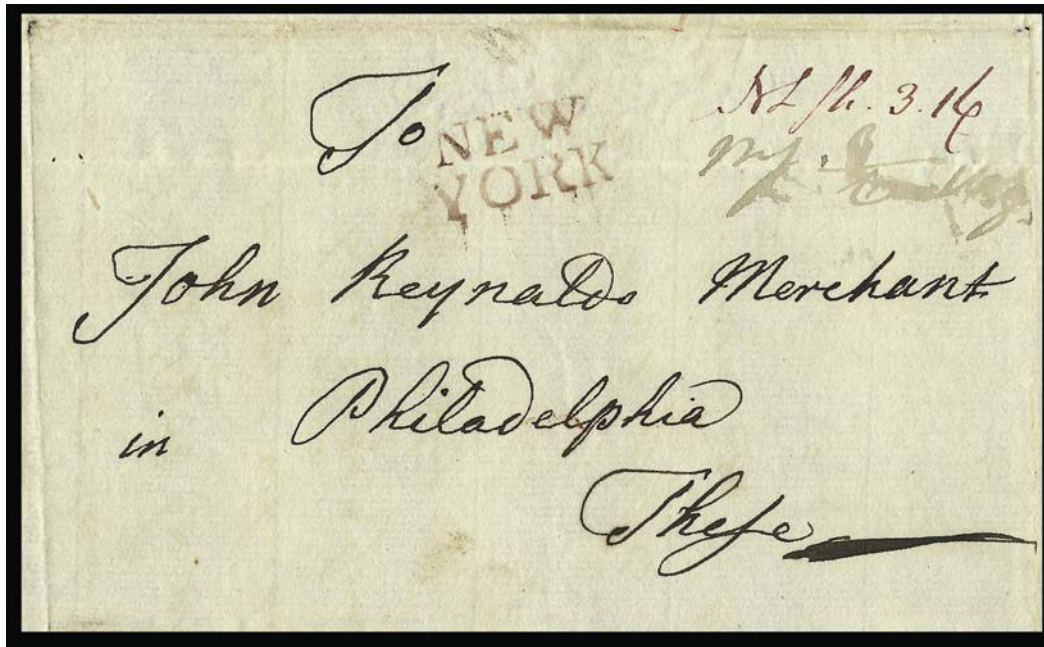 To
NEW
YORK
3.16
John Reynalds Merchant
in Philadelphia
Theſe